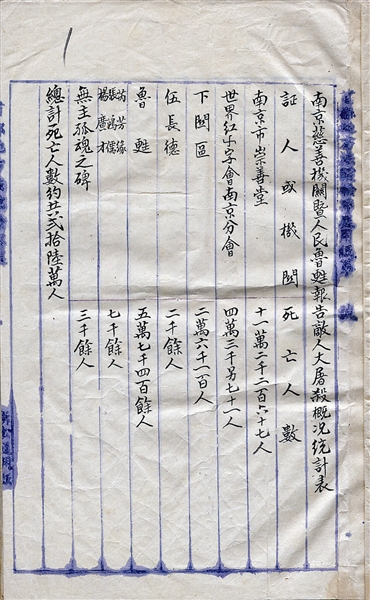 1
南京慈善機關暨人民魯甦報告敵人大屠殺概况統計表
証人或機関 死亡人數
南京市崇善堂 十一萬二千二百六十七人
世界紅卍字會南京分會 四萬三千另七十一人
下関區 二萬六千一百人
伍長德 二千餘人
魯甦 五萬七千四百餘人
芮芳緣
張鴻儒
楊廣才 七千餘人
無主孤魂之碑 三千餘人
總計死亡人數約共弍拾陸萬人